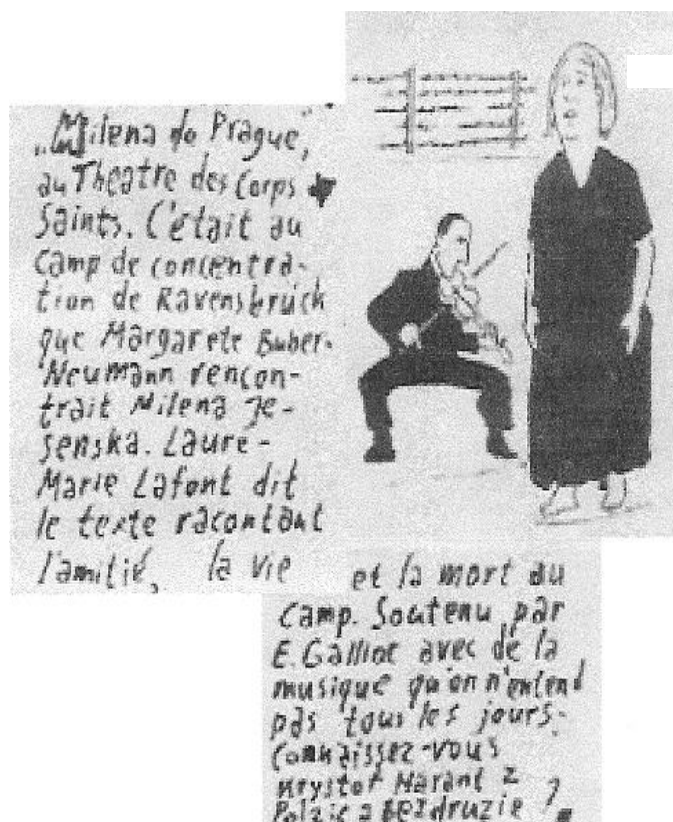 „Milena de Prague,"
au Theatre des Corps
Saints. C'était au
Camp de concentra-
tion de Ravensbrück
que Margarete Buber-
Neumann rencon-
trait Milena Je-
senska. Laure-
Marie Lafont dit
le texte racontant
l'amitié, la vie
et la mort au
Camp. Soutenu par
E. Galliot avec de la
musique qu'on n'entend
pas tous les jours.
Connaissez-vous
Krystof Harant z
Polzic a Bezdruzic ?